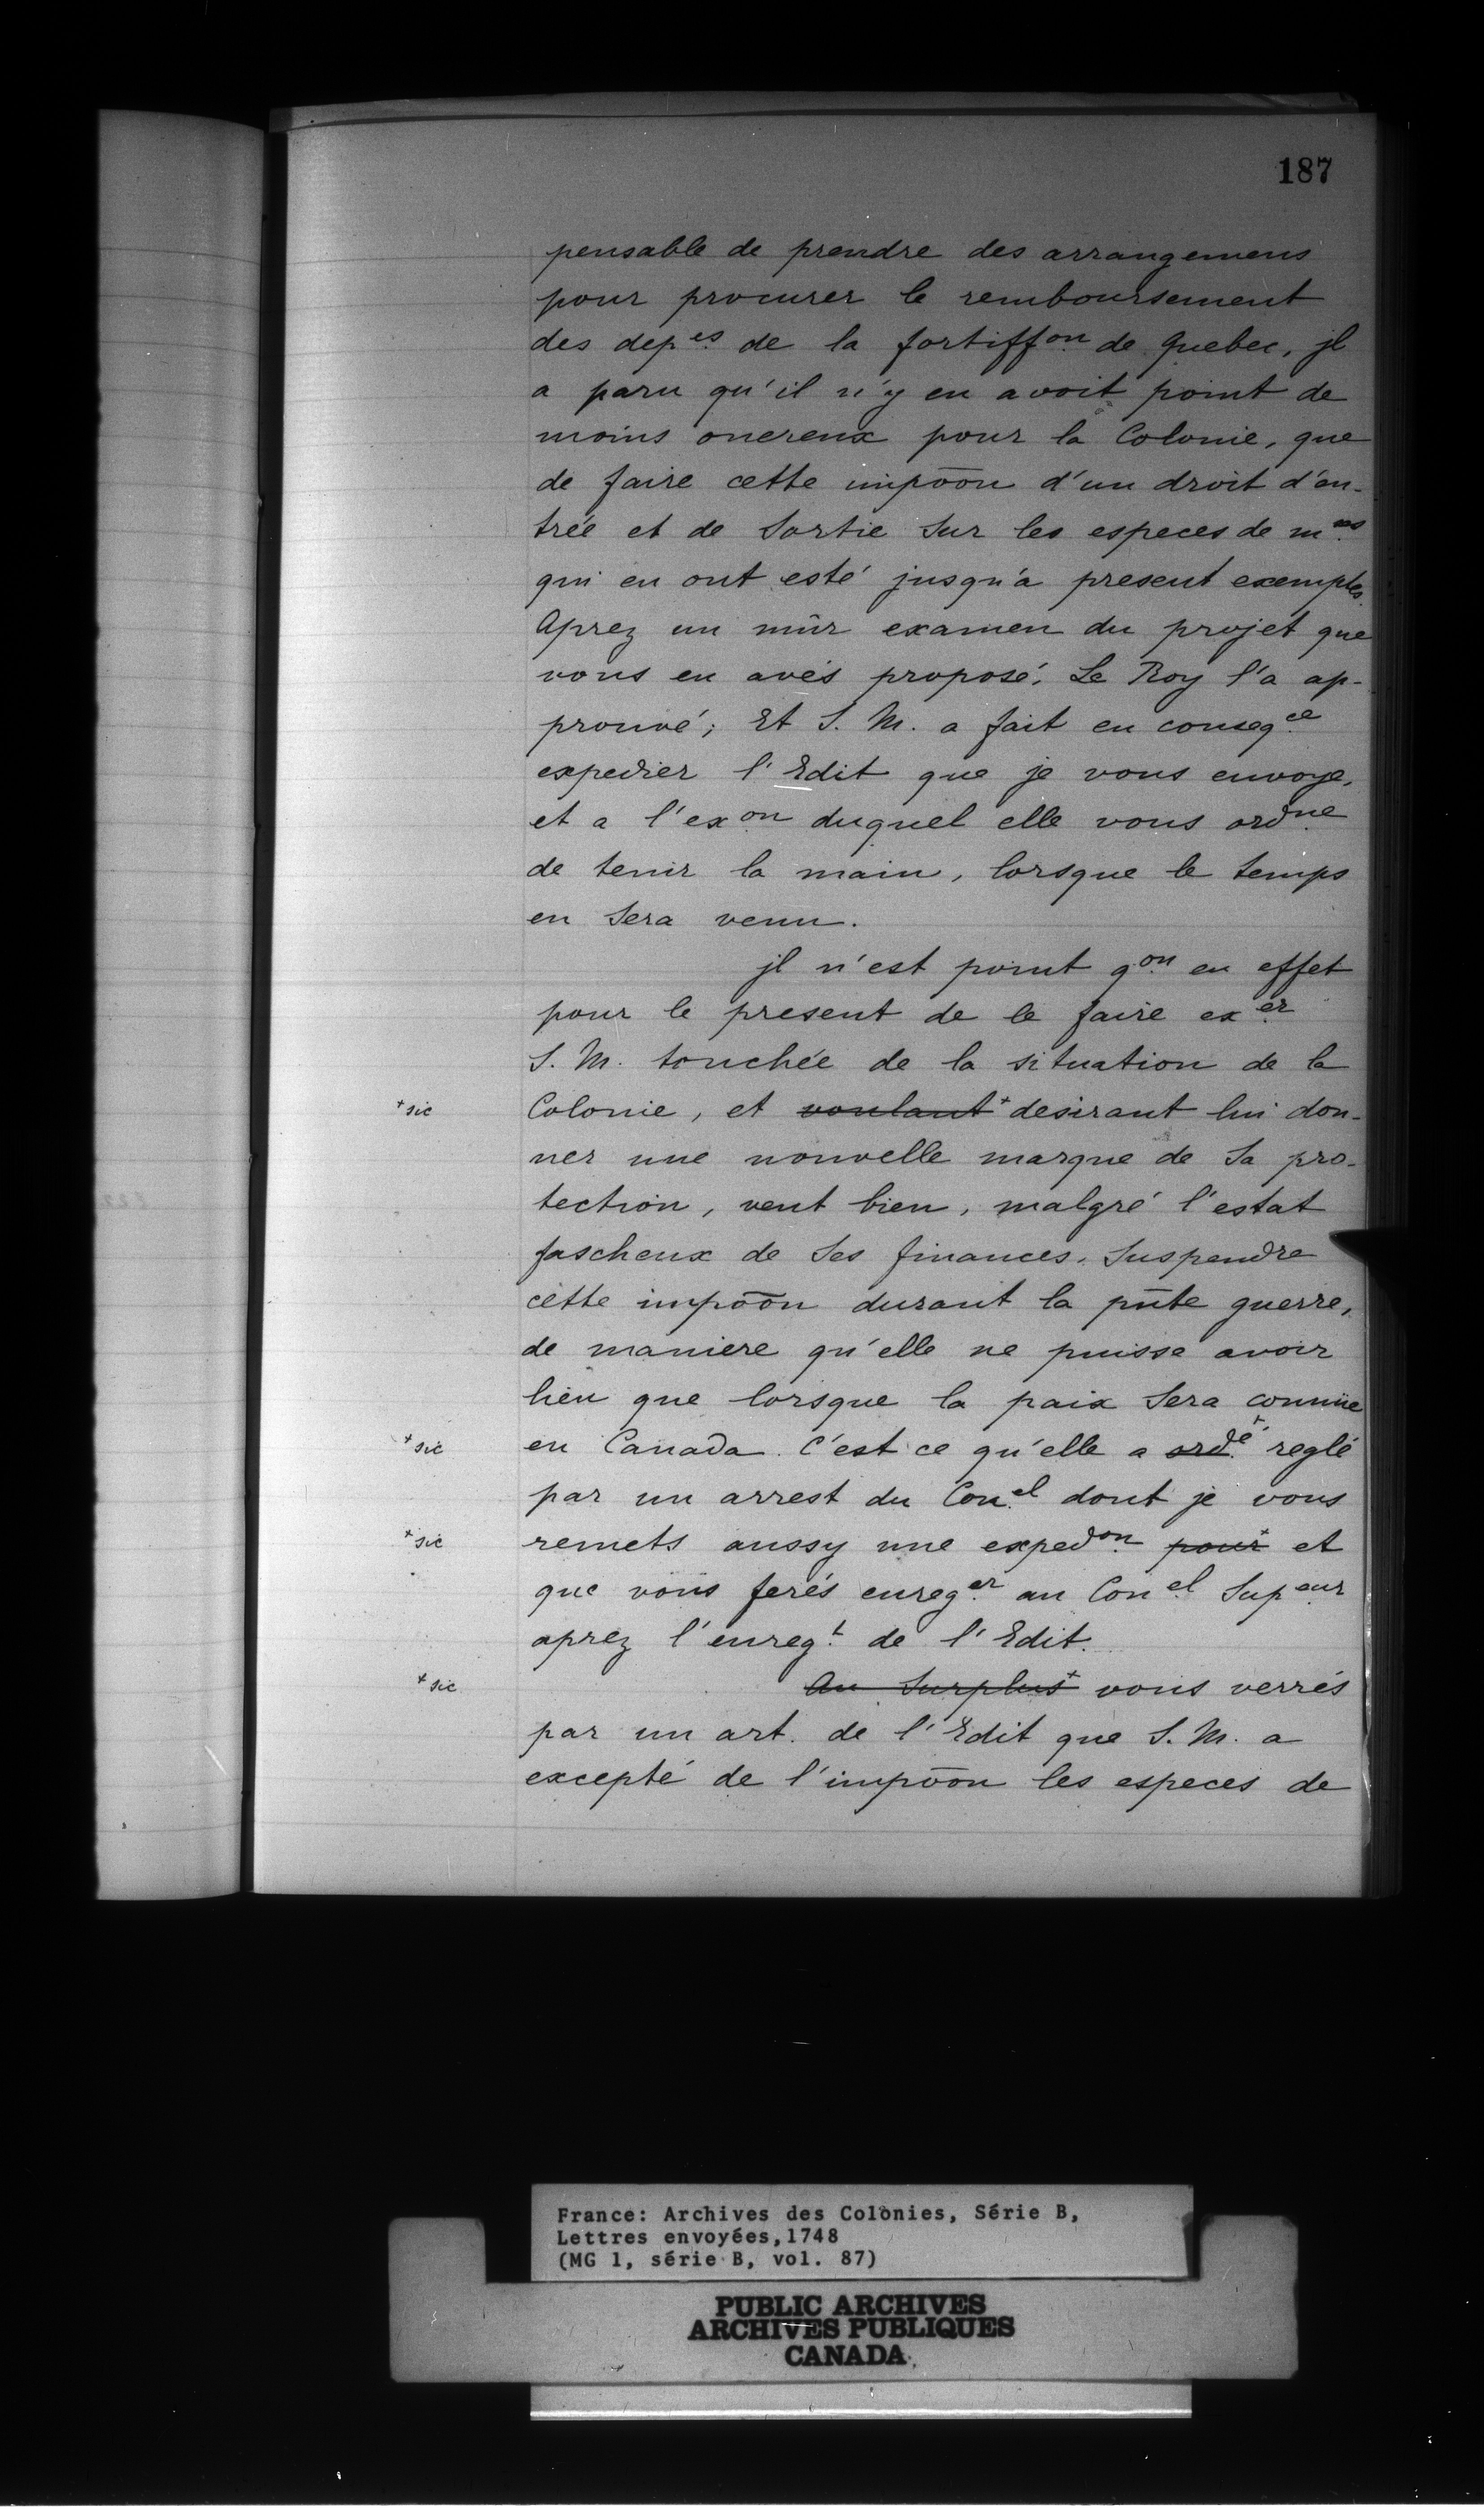 187
pensable de prendre des arrangemens
pour procurer le remboursement
des dep.es de la fortiff.on de Quebec, jl
a paru qu'il n'y en avoit point de
moins onereux pour la Colonie, que
de faire cette impōōn d'un droit d'en-
trée et de Sortie Sur les especes de m.ses
qui en ont esté jusqu'a present exemptes.
Aprez un mûr examen du projet que
vous en avés proposé. Le Roy l'a ap-
prouvé; Et S. M. a fait en conseq.ce
expedier l'Edit que je vous envoye,
et a l'ex.on duquel elle vous ord.ne
de tenir la main, lorsque le temps
en Sera venu.
jl n'est point q.on en effet
pour le present de le faire ex.er
S. M. touchée de la situation de la
+sic Colonie, et voulant+ desirant lui don-
ner une nouvelle marque de Sa pro-
tection, veut bien, malgré l'estat
fascheux de Ses finances, Suspendre
cette impōōn durant la pn̄te guerre,
de maniere qu'elle ne puisse avoir
lieu que lorsque la paix Sera connüe
+sic en Canada. C'est ce qu'elle a ord.é+ reglé
par un arrest du Con.el dont je vous
+sic remets aussy une exped.on pour+ et
que vous ferés enreg.er au Con.el Sup.eur
aprez l'enreg.t de l'Edit.
+sic Au Surplus+ vous verrés
par un art. de l'Edit que S. M. a
excepté de l'impōōn les especes de
France: Archives des Colonies, Série B,
Lettres envoyées, 1748
(MG 1, série B, vol. 87)
PUBLIC ARCHIVES
ARCHIVES PUBLIQUES
CANADA